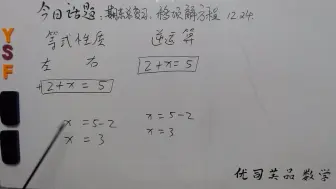 今日话题：期末总复习，移项解方程 12.24.
等式性质 逆运算
左 右 2+x=5
2+x=5
x=5-2 x=5-2
x=3 x=3
YSF
优司英品数学